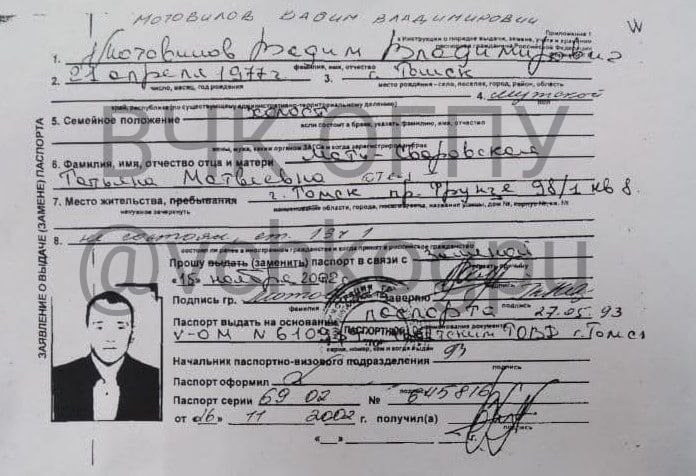 Мотовилов Вадим Владимирович
W
Приложение 1
к Инструкции о порядке выдачи, замены, учета и хранения
паспортов гражданина Российской Федерации
ЗАЯВЛЕНИЕ О ВЫДАЧЕ (ЗАМЕНЕ) ПАСПОРТА
1. Мотовилов Вадим Владимирович
фамилия, имя, отчество
2. 21 апреля 1977 г 3. г. Томск
число, месяц, год рождения место рождения - село, поселок, город, район, область
4. мужской
край, республика (по существующему административно-территориальному делению) пол
5. Семейное положение холост
если состоит в браке, указать фамилию, имя, отчество
мужа, каким органом ЗАГСа и когда зарегистрирован брак
6. Фамилия, имя, отчество отца и матери Мать-
Татьяна Матвеевна
7. Место жительства, пребывания г. Томск пр. Фрунзе 98/1 кв 8.
ненужное зачеркнуть наименование области, города, название улицы, дом №, корпус №, кв. №
8. не состоял
состоял ли ранее в иностранном гражданстве и когда принят в российское гражданство
Прошу выдать (заменить) паспорт в связи с заменой
«15» ноября 2002 г.
Подпись гр. Заверяю
фамилия подпись
Паспорт выдать на основании паспорта 27.05.93
V-ОМ N Советским РОВД г. Томск
серия, номер, кем и когда выдан
93
Начальник паспортно-визового подразделения
подпись
Паспорт оформил
Паспорт серии 69 02 № 645816
от «16» 11 2002 г. получил(а)
подпись
«__»
ПАСПОРТНОЕ
ВЧК ОГПУ
@vchkogpu